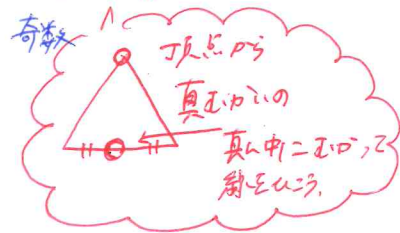 奇数
頂点から
真むかいの
真ん中にむかって
線をひこう。